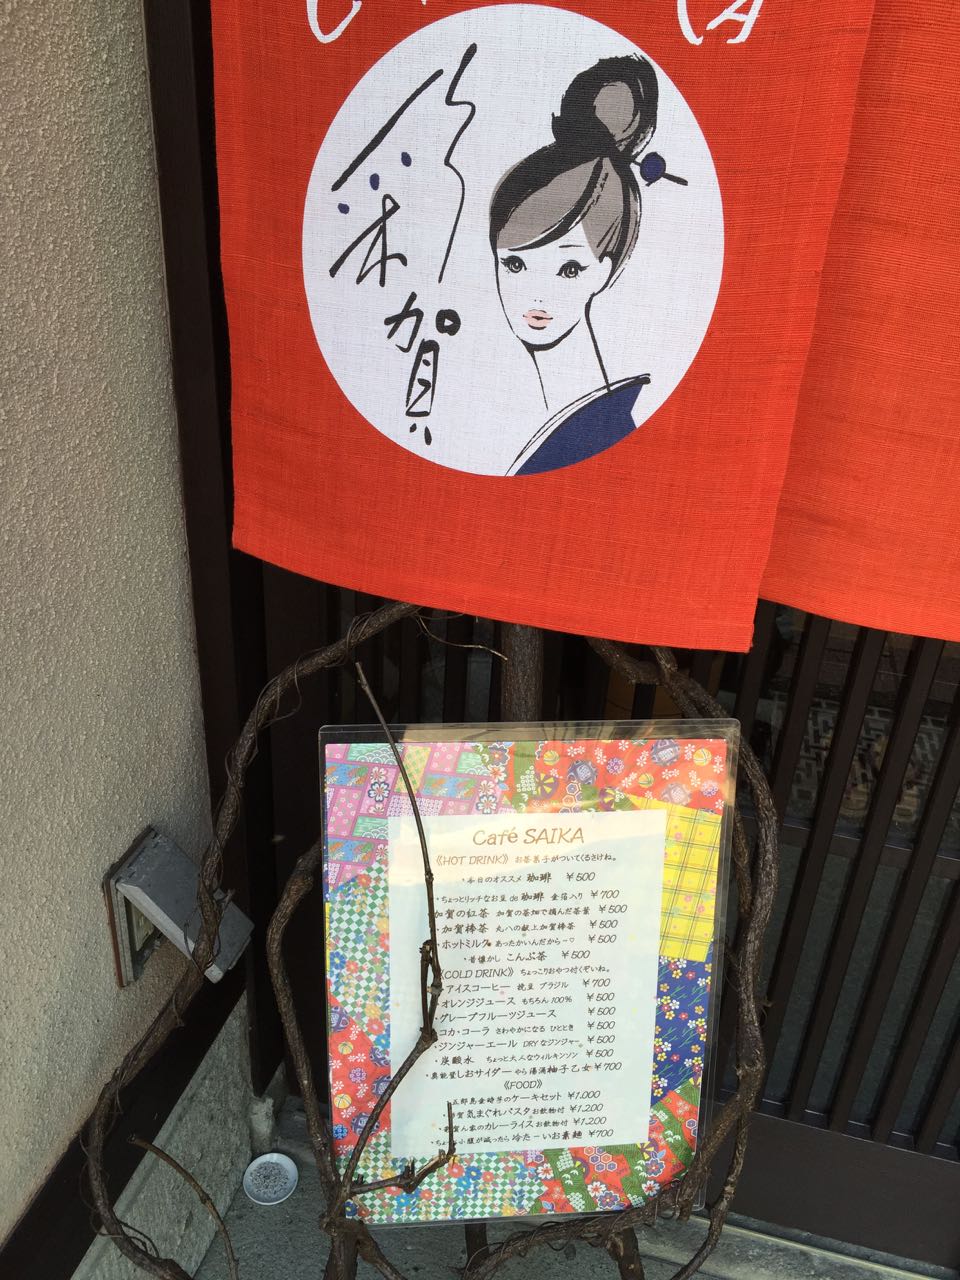 彩賀
Café SAIKA
《HOT DRINK》 お茶菓子がついてくるさけね。
・本日のオススメ 珈琲 ¥500
・ちょっとリッチなお豆de珈琲 金箔入り ¥700
加賀の紅茶 加賀の茶畑で摘んだ茶葉 ¥500
・加賀棒茶 丸八の献上加賀棒茶 ¥500
・ホットミルク あったかいんだから～♡ ¥500
・昔懐かし こんぶ茶 ¥500
《COLD DRINK》 ちょっこりおやつ付くぞいね。
・アイスコーヒー 挽豆 ブラジル ¥700
・オレンジジュース もちろん100% ¥500
・グレープフルーツジュース ¥500
コカ・コーラ さわやかになる ひととき ¥500
・ジンジャーエール DRYなジンジャー ¥500
・炭酸水 ちょっと大人なウィルキンソン ¥500
・奥能登しおサイダー やら湯涌柚子乙女 ¥700
《FOOD》
五郎島金時芋のケーキセット ¥1,000
賀気まぐれパスタ お飲物付 ¥1,200
ん家のカレーライス お飲物付 ¥1,200
・ちょ 小腹が減ったら 冷たーいお素麺 ¥700